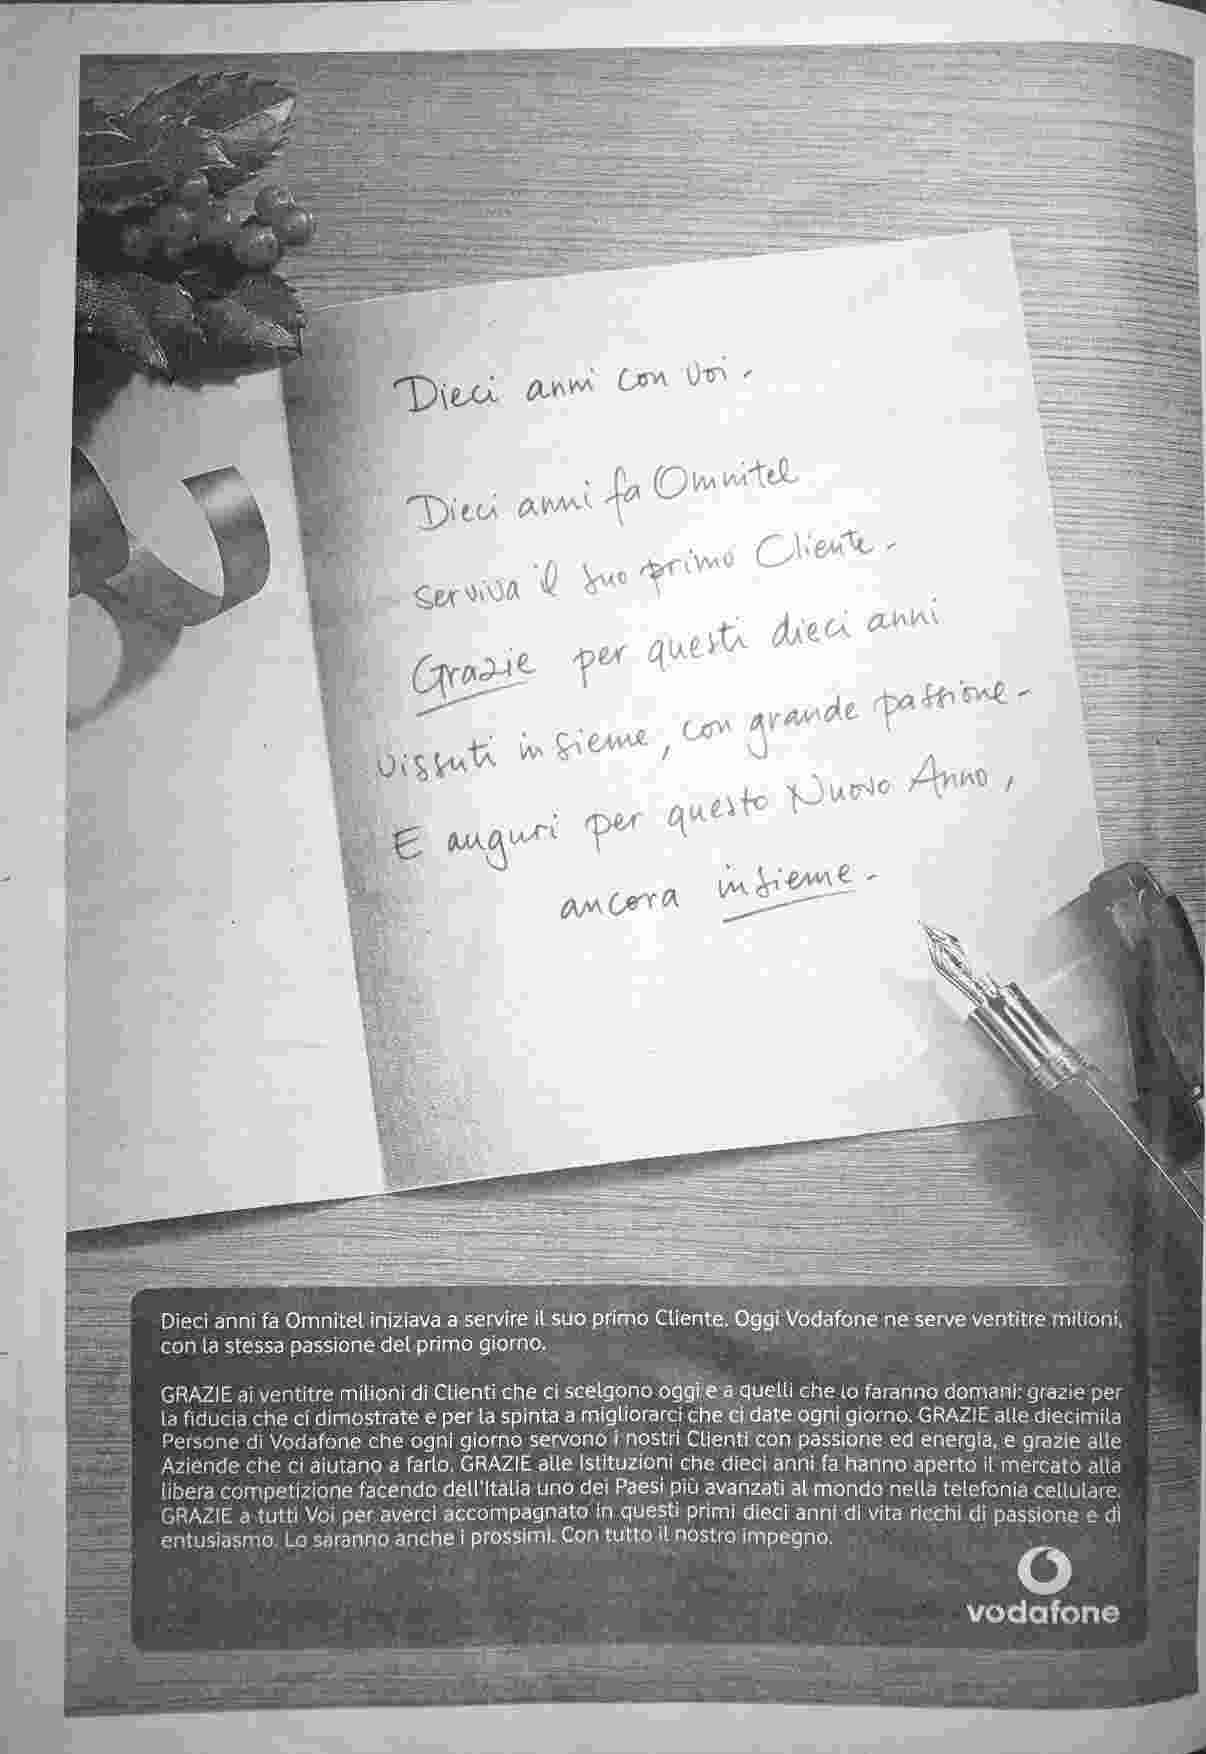 Dieci anni con voi.
Dieci anni fa Omnitel
serviva il suo primo Cliente.
Grazie per questi dieci anni
vissuti insieme, con grande passione.
E auguri per questo Nuovo Anno,
ancora insieme.
Dieci anni fa Omnitel iniziava a servire il suo primo Cliente. Oggi Vodafone ne serve ventitre milioni,
con la stessa passione del primo giorno.
GRAZIE ai ventitre milioni di Clienti che ci scelgono oggi e a quelli che lo faranno domani: grazie per
la fiducia che ci dimostrate e per la spinta a migliorarci che ci date ogni giorno. GRAZIE alle diecimila
Persone di Vodafone che ogni giorno servono i nostri Clienti con passione ed energia, e grazie alle
Aziende che ci aiutano a farlo. GRAZIE alle Istituzioni che dieci anni fa hanno aperto il mercato alla
libera competizione facendo dell'Italia uno dei Paesi più avanzati al mondo nella telefonia cellulare.
GRAZIE a tutti Voi per averci accompagnato in questi primi dieci anni di vita ricchi di passione e di
entusiasmo. Lo saranno anche i prossimi. Con tutto il nostro impegno.
vodafone